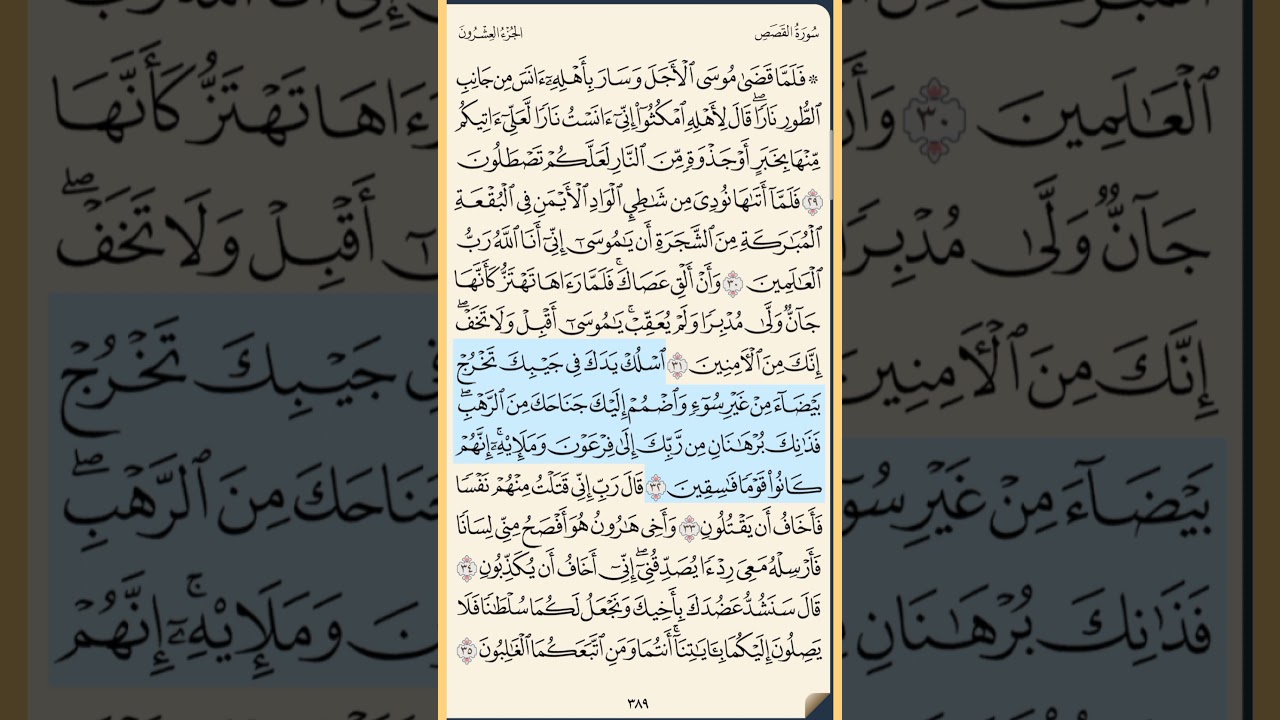 سُورَةُ القَصَصِ
الجُزْءُ العِشْرُونَ
۞ فَلَمَّا قَضَىٰ مُوسَى ٱلْأَجَلَ وَسَارَ بِأَهْلِهِۦٓ ءَانَسَ مِن جَانِبِ
ٱلطُّورِ نَارًاۖ قَالَ لِأَهْلِهِ ٱمْكُثُوٓا۟ إِنِّىٓ ءَانَسْتُ نَارًا لَّعَلِّىٓ ءَاتِيكُم
مِّنْهَا بِخَبَرٍ أَوْ جَذْوَةٍ مِّنَ ٱلنَّارِ لَعَلَّكُمْ تَصْطَلُونَ
٢٩ فَلَمَّآ أَتَىٰهَا نُودِىَ مِن شَـٰطِئِ ٱلْوَادِ ٱلْأَيْمَنِ فِى ٱلْبُقْعَةِ
ٱلْمُبَـٰرَكَةِ مِنَ ٱلشَّجَرَةِ أَن يَـٰمُوسَىٰٓ إِنِّىٓ أَنَا ٱللَّهُ رَبُّ
ٱلْعَـٰلَمِينَ ٣٠ وَأَنْ أَلْقِ عَصَاكَۚ فَلَمَّا رَءَاهَا تَهْتَزُّ كَأَنَّهَا
جَآنٌّ وَلَّىٰ مُدْبِرًا وَلَمْ يُعَقِّبْۚ يَـٰمُوسَىٰٓ أَقْبِلْ وَلَا تَخَفْۖ
إِنَّكَ مِنَ ٱلْـَٔامِنِينَ ٣١ ٱسْلُكْ يَدَكَ فِى جَيْبِكَ تَخْرُجْ
بَيْضَآءَ مِنْ غَيْرِ سُوٓءٍ وَٱضْمُمْ إِلَيْكَ جَنَاحَكَ مِنَ ٱلرَّهْبِۖ
فَذَٰنِكَ بُرْهَـٰنَانِ مِن رَّبِّكَ إِلَىٰ فِرْعَوْنَ وَمَلَإِي۟هِۦٓۚ إِنَّهُمْ
كَانُوا۟ قَوْمًا فَـٰسِقِينَ ٣٢ قَالَ رَبِّ إِنِّى قَتَلْتُ مِنْهُمْ نَفْسًا
فَأَخَافُ أَن يَقْتُلُونِ ٣٣ وَأَخِى هَـٰرُونُ هُوَ أَفْصَحُ مِنِّى لِسَانًا
فَأَرْسِلْهُ مَعِىَ رِدْءًا يُصَدِّقُنِىٓۖ إِنِّىٓ أَخَافُ أَن يُكَذِّبُونِ ٣٤
قَالَ سَنَشُدُّ عَضُدَكَ بِأَخِيكَ وَنَجْعَلُ لَكُمَا سُلْطَـٰنًا فَلَا
يَصِلُونَ إِلَيْكُمَا بِـَٔايَـٰتِنَآۚ أَنتُمَا وَمَنِ ٱتَّبَعَكُمَا ٱلْغَـٰلِبُونَ ٣٥
٣٨٩